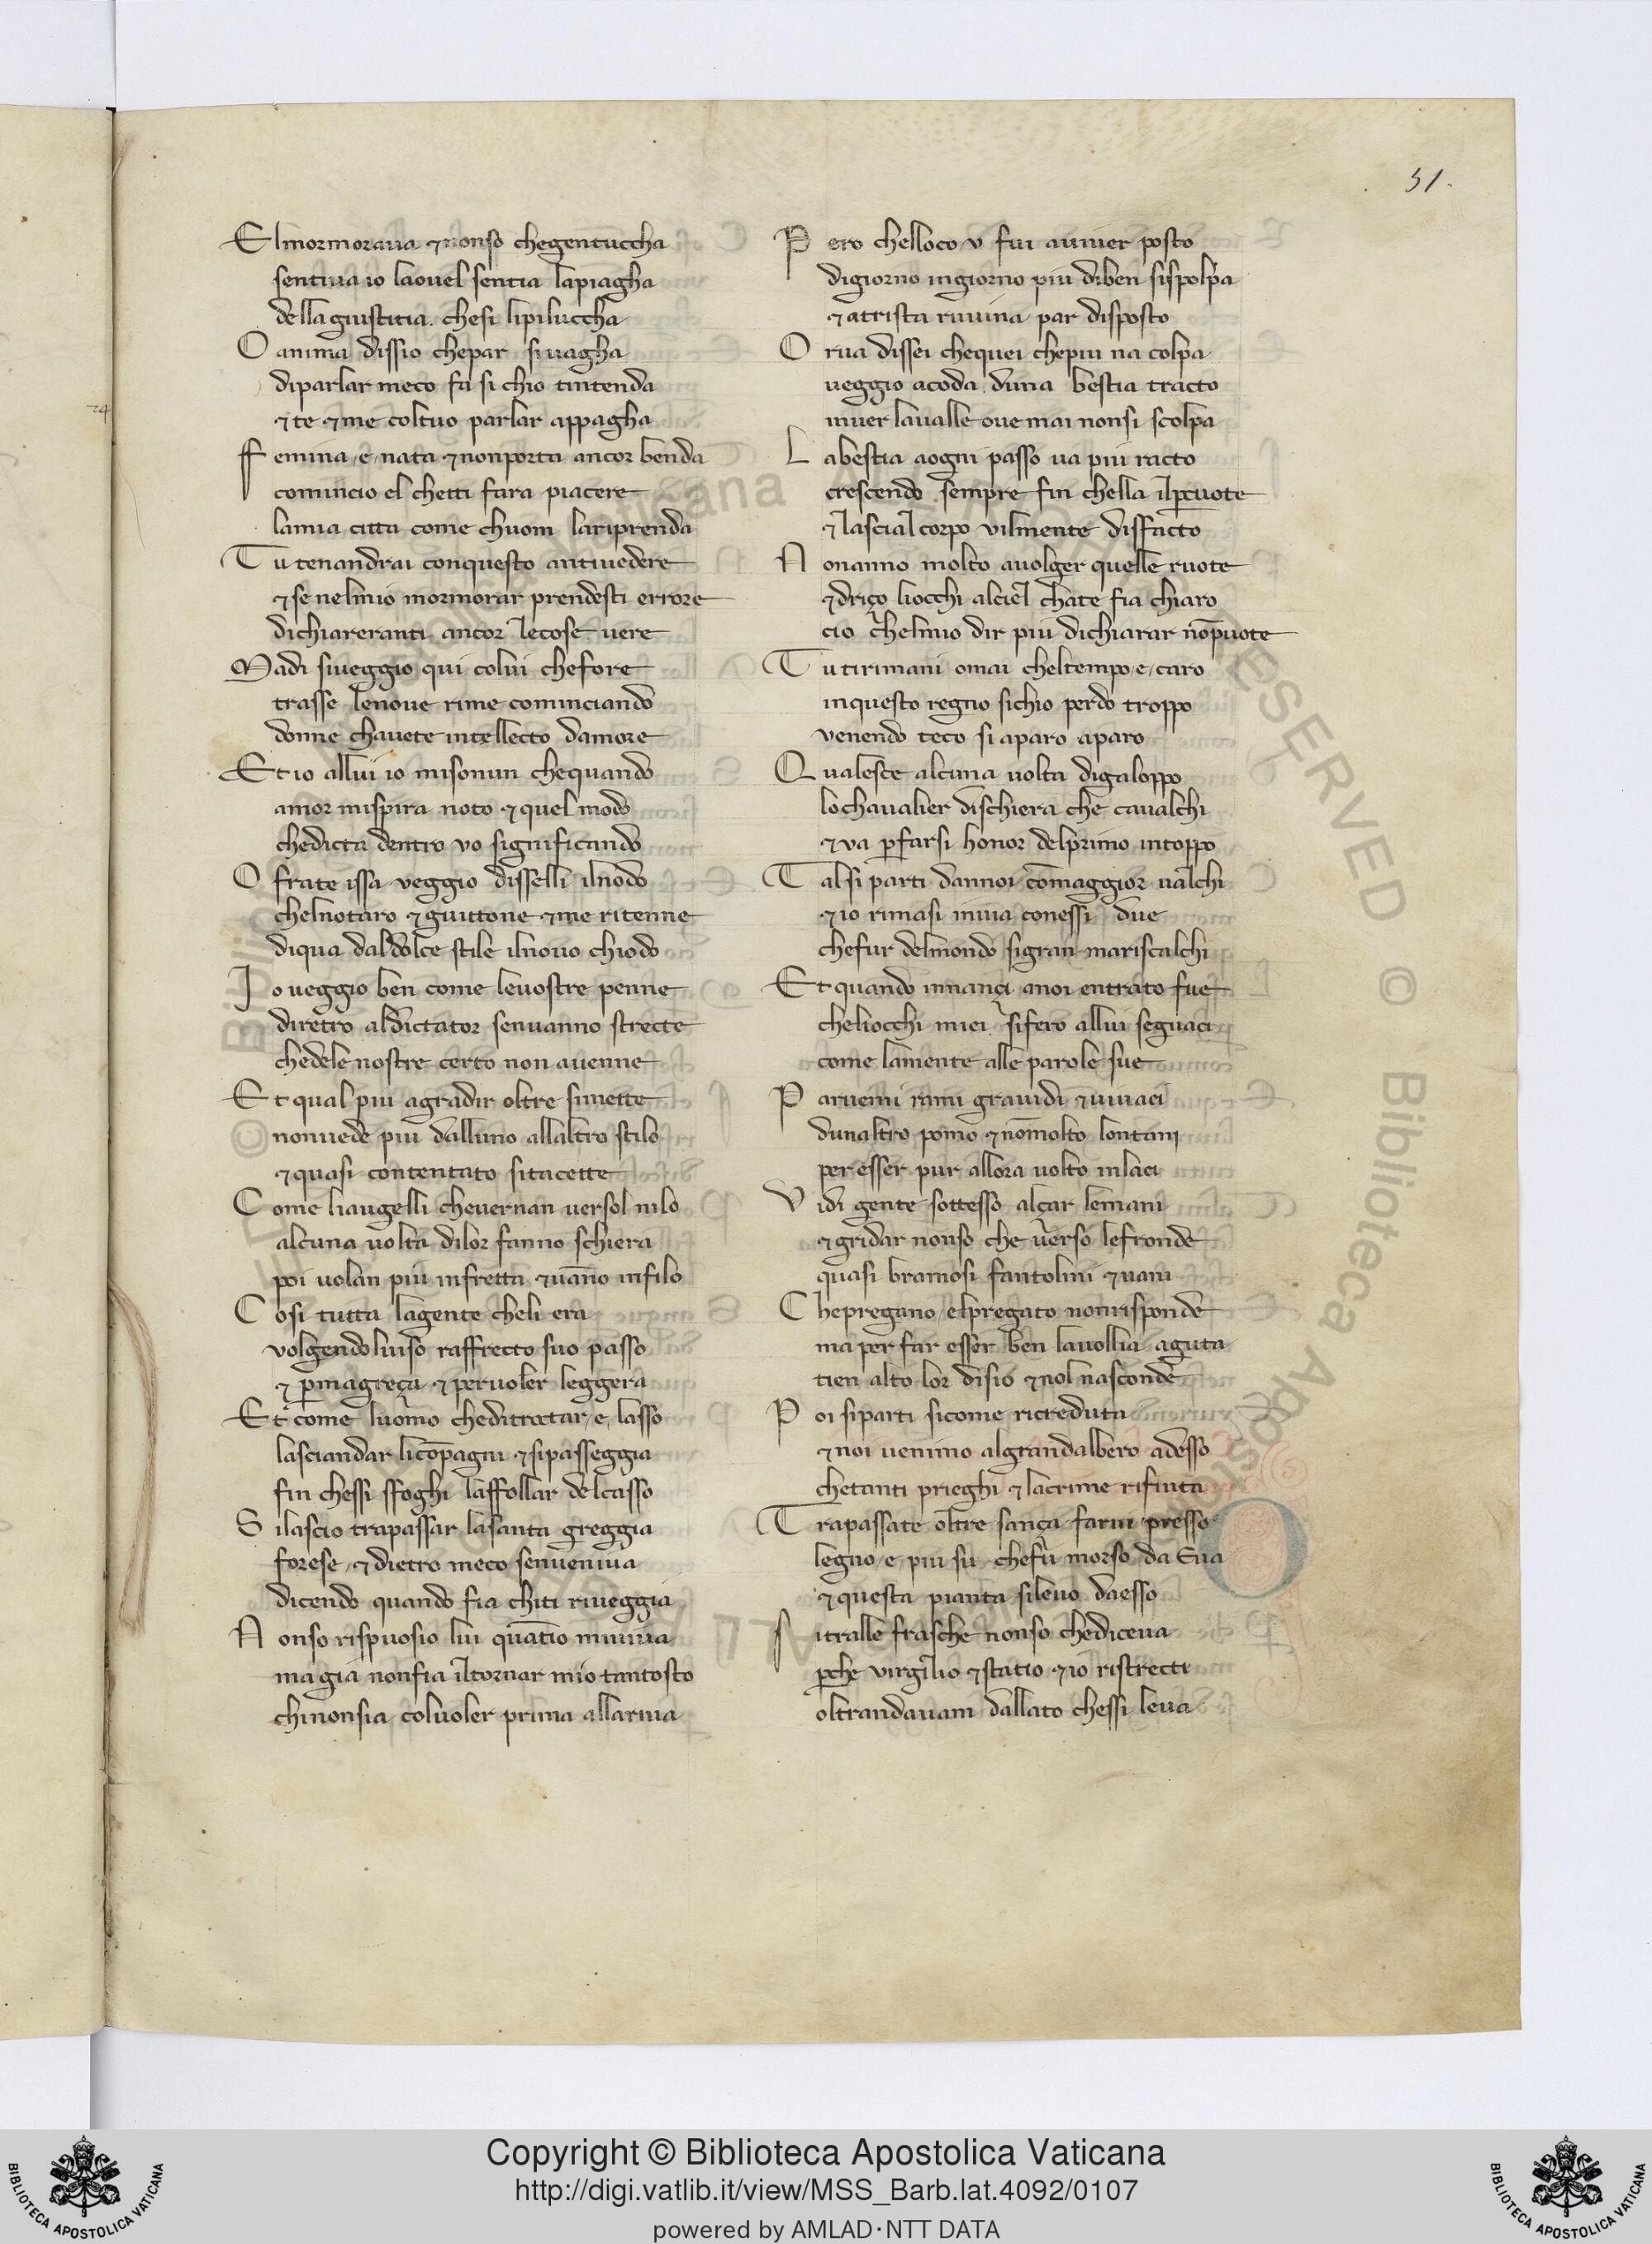 51.
El mormoraua ⁊ nonso chegentuccha
sentiua io laouel sentia lapiagha
dellagiustitia. chesi lipiluccha
O anima dissio chepar siuagha
diparlar meco fa si chio tintenda
⁊ te ⁊ me coltuo parlar appagha
Ff emina e nata ⁊ nonporta ancor benda
comincio el chetti fara piacere
lamia citta come chuom lariprenda
T utenandrai conquesto antiuedere
⁊ se nelmio mormorar prendesti errore
dichiareranti ancor lecose uere
Madi siueggio qui colui chefore
trasse lenoue rime cominciando
donne chauete intellecto damore
Et io allui io misonun chequando
amor mispira noto ⁊ quel modo
chedicta dentro uo significando
O frate issa veggio disselli ilnodo
chelnotaro ⁊ guittone ⁊ me ritenne
diqua daldolce stile ilnouo chiodo
I o ueggio ben come leuostre penne
diretro aldictator senuanno strecte
chedele nostre certo non auenne
E t qual piu agradir oltre simette
nonuede piu dalluno allaltro stilo
⁊ quasi contentato sitacette
C ome liaugelli cheuernan uersol nilo
alcuna uolta dilor fanno schiera
poi uolan piu infretta ⁊ uāno infilo
C osi tutta lagente cheli era
volgendoluiso raffrecto suo passo
⁊ p̄magreça ⁊ peruoler leggera
Et come luomo cheditroctar e lasso
lasciandar licōpagni ⁊ sipasseggia
fin chessi sfoghi laffollar delcasso
S ilascio trapassar lasanta greggia
forese ⁊ dietro meco senueniua
dicendo quando fia chiti riueggia
N onso rispuosio lui quātio miuiua
magia nonfia iltornar mio tantosto
chinonsia coluoler prima allariua
P ero chelloco v fui auiuer posto
digiorno ingiorno piu diben sispolpa
⁊ atrista ruuina par disposto
O rua dissei chequei chepiu na colpa
ueggio acoda duna bestia tracto
inuer laualle oue mai nonsi scolpa
L abestia aogni passo ua piu racto
crescendo sempre fin chella ilp̄cuote
⁊ lascial corpo vilmente disfacto
N onanno molto auolger quelle ruote
⁊ driço liocchi alciel chate fia chiaro
cio chelmio dir piu dichiarar nōpuote
T utirimani omai cheltempo e caro
inquesto regno sichio perdo troppo
venendo teco si aparo aparo
Q ualesce alcuna uolta digaloppo
lochaualier dischiera che caualchi
⁊ va p̄farsi honor delprimo intoppo
T alsi parti dannoi cōmaggior ualchi
⁊ io rimasi inuia conessi due
chefur delmondo sigran mariscalchi
Et quando innançi anoi entrato fue
cheliocchi miei sifero allui seguaci
come lamente alle parole sue
P aruemi rami grauidi ⁊ uiuaci
dunaltro pomo ⁊ nōmolto lontani
per esser pur allora uolto inlaci
V idi gente sottesso alçar lemani
⁊ gridar nonso che uerso lefronde
quasi bramosi fantolini ⁊ uani
C hepregano elpregato nonrisponde
ma per far esser ben lauollia aguta
tien alto lor disio ⁊ nol nasconde
P oi siparti sicome ricreduta
⁊ noi uenimo algrandalbero adesso
chetanti prieghi ⁊ lacrime rifiuta
T rapassate oltre sança farui presso
legno e piu su chefu morso da Eua
⁊ questa pianta sileuo daesso
S itralle frasche nonso chediceua
p̄che virgilio ⁊ statio ⁊ io ristrecti
oltrandauam dallato chessi leua
Copyright © Biblioteca Apostolica Vaticana
http://digi.vatlib.it/view/MSS_Barb.lat.4092/0107
powered by AMLAD·NTT DATA
BIBLIOTECA APOSTOLICA VATICANA
BIBLIOTECA APOSTOLICA VATICANA